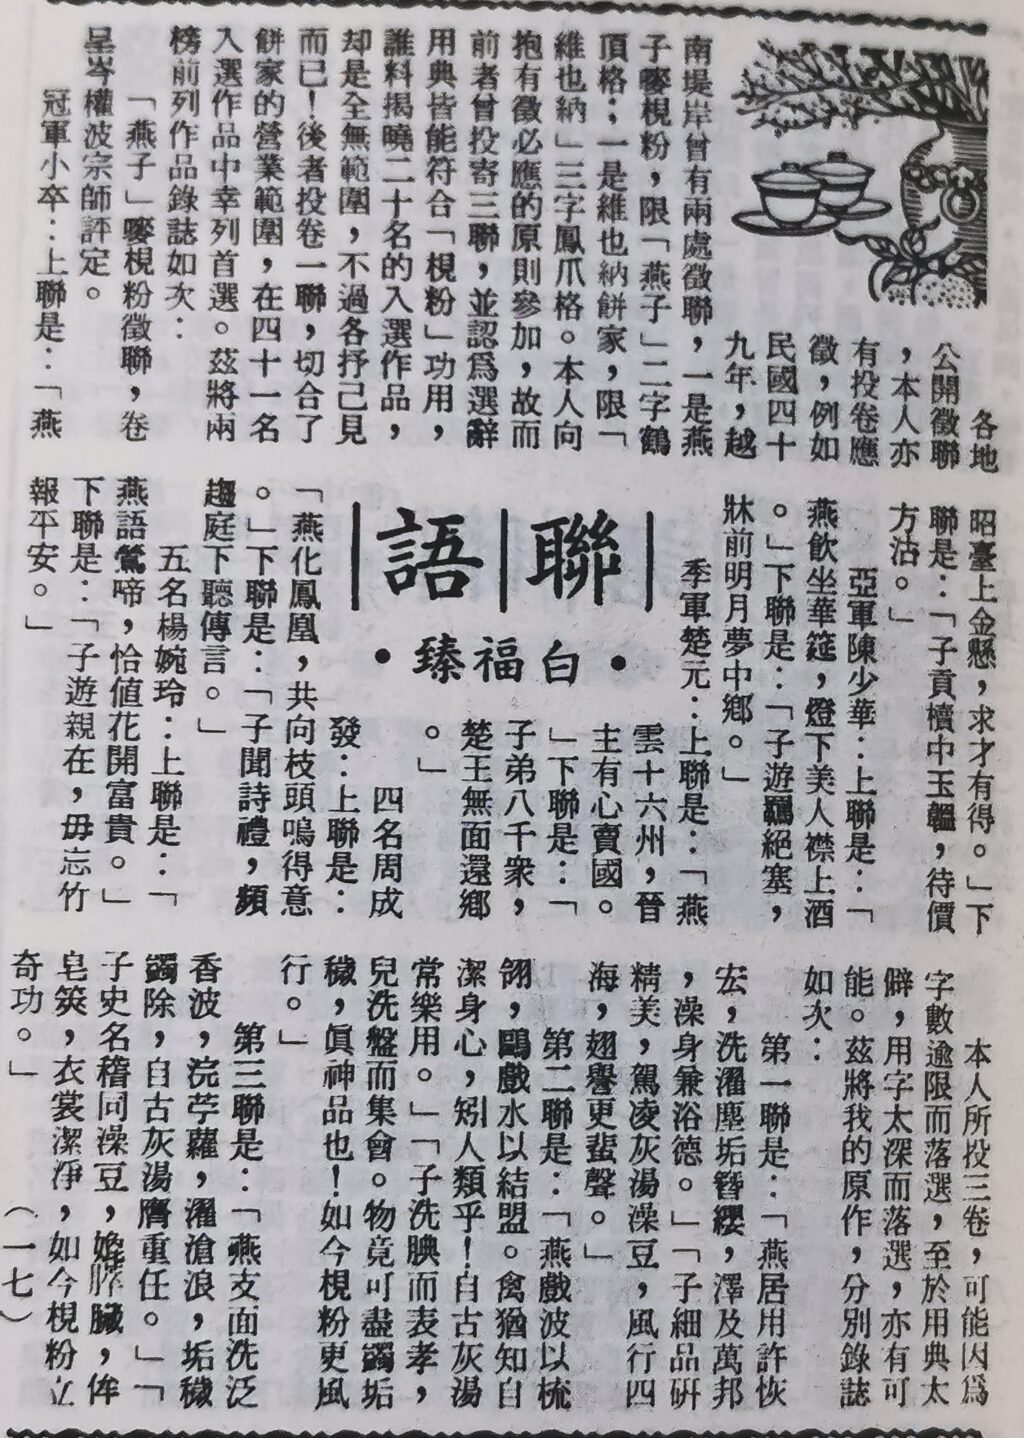 聯語
•白福臻•
各地
公開徵聯
，本人亦
有投卷應
徵，例如
民國四十
九年，越
南堤岸曾有兩處徵聯，一是燕
子嘜梘粉，限「燕子」二字鶴
頂格；一是維也納餅家，限「
維也納」三字鳳爪格。本人向
抱有徵必應的原則參加，故而
前者曾投寄三聯，並認爲選辭
用典皆能符合「梘粉」功用，
誰料揭曉二十名的入選作品，
却是全無範圍，不過各抒己見
而已！後者投卷一聯，切合了
餅家的營業範圍，在四十一名
入選作品中幸列首選。茲將兩
榜前列作品錄誌如次：
「燕子」嘜梘粉徵聯，卷
呈岑權波宗師評定。
冠軍小卒：上聯是：「燕
昭臺上金懸，求才有得。」下
聯是：「子貢櫝中玉韞，待價
方沽。」
亞軍陳少華：上聯是：「
燕飲坐華筵，燈下美人襟上酒
。」下聯是：「子遊羈絕塞，
牀前明月夢中鄉。」
季軍楚元：上聯是：「燕
雲十六州，晉
主有心賣國。
」下聯是：「
子弟八千衆，
楚王無面還鄉
。」
四名周成
發：上聯是：
「燕化鳳凰，共向枝頭鳴得意
。」下聯是：「子聞詩禮，頻
趨庭下聽傳言。」
五名楊婉玲：上聯是：「
燕語鶯啼，恰値花開富貴。」
下聯是：「子遊親在，毋忘竹
報平安。」
本人所投三卷，可能因爲
字數逾限而落選，至於用典太
僻，用字太深而落選，亦有可
能。茲將我的原作，分別錄誌
如次：
第一聯是：「燕居用許恢
宏，洗濯塵垢簪纓，澤及萬邦
，澡身兼浴德。」「子細品硏
精美，駕凌灰湯澡豆，風行四
海，翅譽更蜚聲。」
第二聯是：「燕戲波以梳
翎，鷗戲水以結盟。禽猶知自
潔身心，矧人類乎！自古灰湯
常樂用。」「子洗腆而表孝，
兒洗盤而集會。物竟可盡蠲垢
穢，眞神品也！如今梘粉更風
行。」
第三聯是：「燕支面洗泛
香波，浣苧蘿，濯滄浪，垢穢
蠲除，自古灰湯膺重任。」「
子史名稽同澡豆，媲膵臟，侔
皂筴，衣裳潔淨，如今梘粉立
奇功。」
（一七）